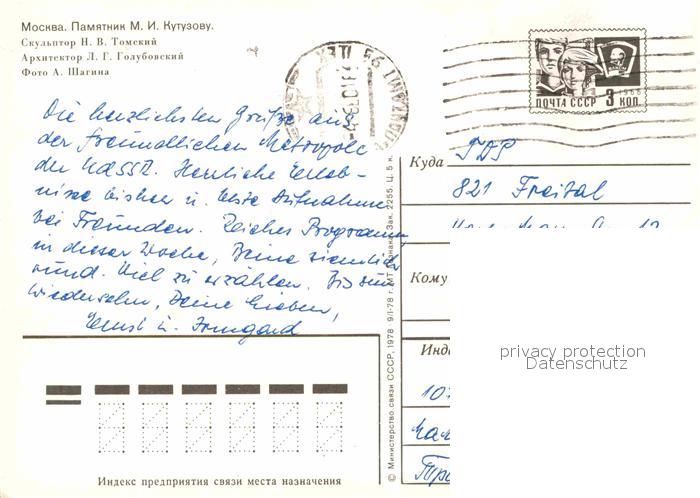 Москва. Памятник М. И. Кутузову.
Скульптор Н. В. Томский
Архитектор Л. Г. Голубовский
Фото А. Шагина
ПОЧТА СССР 3 КОП.
1966
Die herzlichsten Grüße aus
der freundlichen Metropole
der UdSSR. Herrliche Erleb-
nisse bisher u. beste Aufnahme
bei Freunden. Reiches Programm
in dieser Woche, Beine ziemlich
rund. Viel zu erzählen. Bis zum
Wiedersehn, Deine lieben,
Ernst u. Irmgard
Куда ГДР
821 Freital
Кому
Инд
107
© Министерство связи СССР, 1978 9/I-78 г. МТ Гознака. Зак. 2255. Ц. 5 к.
Индекс предприятия связи места назначения
privacy protection
Datenschutz